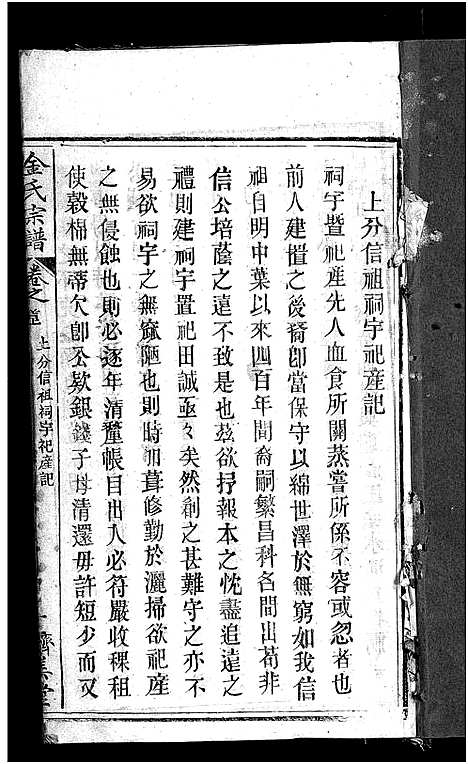 上分信祖祠宇祀産記
祠宇暨祀産先人血食所關蒸嘗所係不容或忽者也
前人建置之後裔卽當保守以綿世澤於無窮如我信
祖自明中葉以來四百年間裔嗣繁昌科名間出苟非
信公培蔭之遠不致是也茲欲抒報本之忱盡追遠之
禮則建祠宇置祀田誠亟々矣然創之甚難守之亦不
易欲祠宇之無窳陋也則時加葺修勤於灑掃欲祀産
之無侵蝕也則必逐年清釐帳目出入必符嚴收稞租
使穀棉無蒂欠卽公欵銀錢子母清還毋許短少而又
金氏宗譜
卷之
上分信祖祠宇祀産記
一
濟美堂